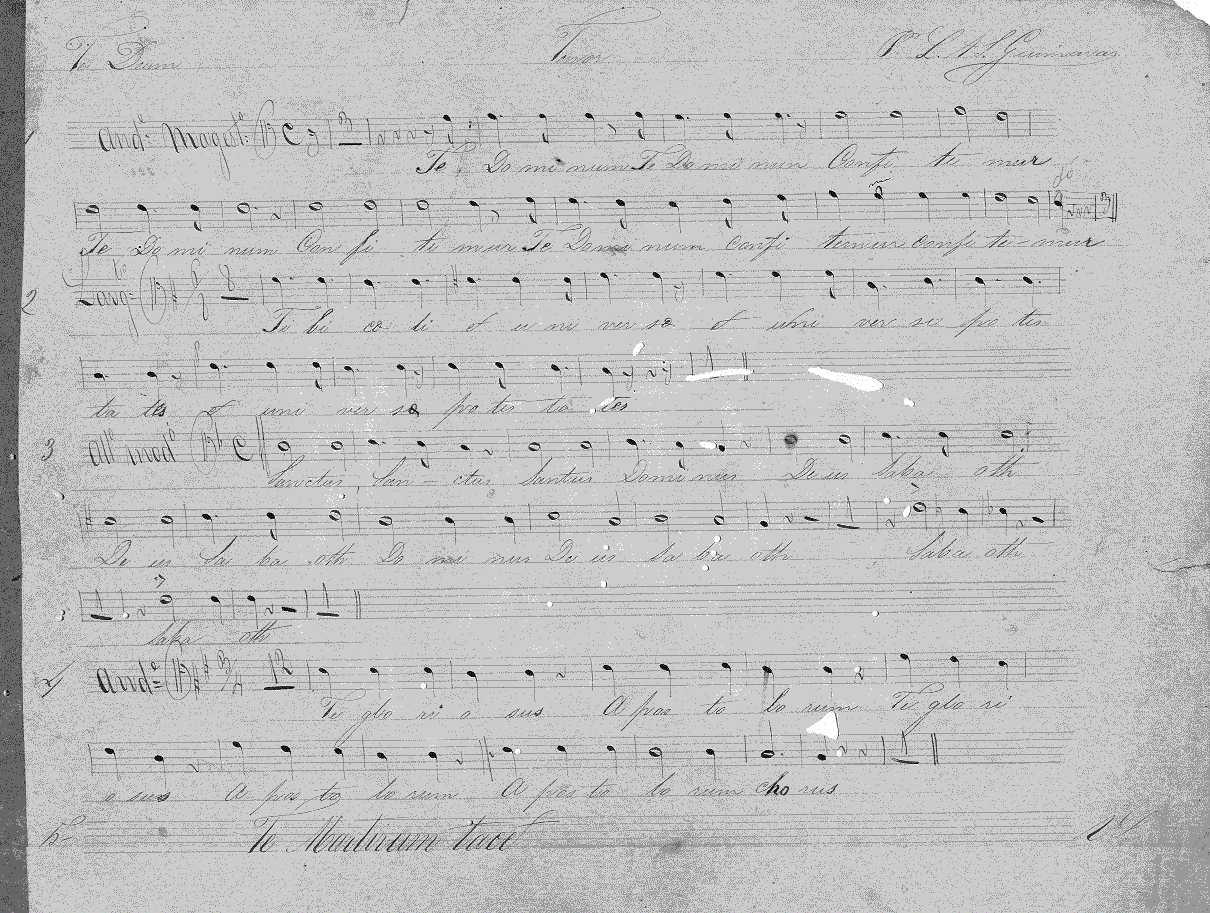 Te Deum Tenor Por L. A. S. Guimarães
Andte Magesto: C
Te Do mi num Te Do mi num Confi te mur
Te Do mi num Con fi te mur Te Domi num confi temur confi te - mur
2 Largto 6 8
Ti bi cœ li et u ni ver sæ et uni ver sæ po tes
ta tes et uni ver sæ po tes ta tes
3 Allo modto C
Sanctus, San - ctus Santus Domi nus De us Saba oth
De us Sa ba oth Do mi nus De us Sa ba oth Saba oth
Saba oth
Andte 12
Te glo ri o sus A pos to lo rum Te glo ri
o sus A pos to lo rum A pos to lo rum cho rus
5o Te Martirum tacet